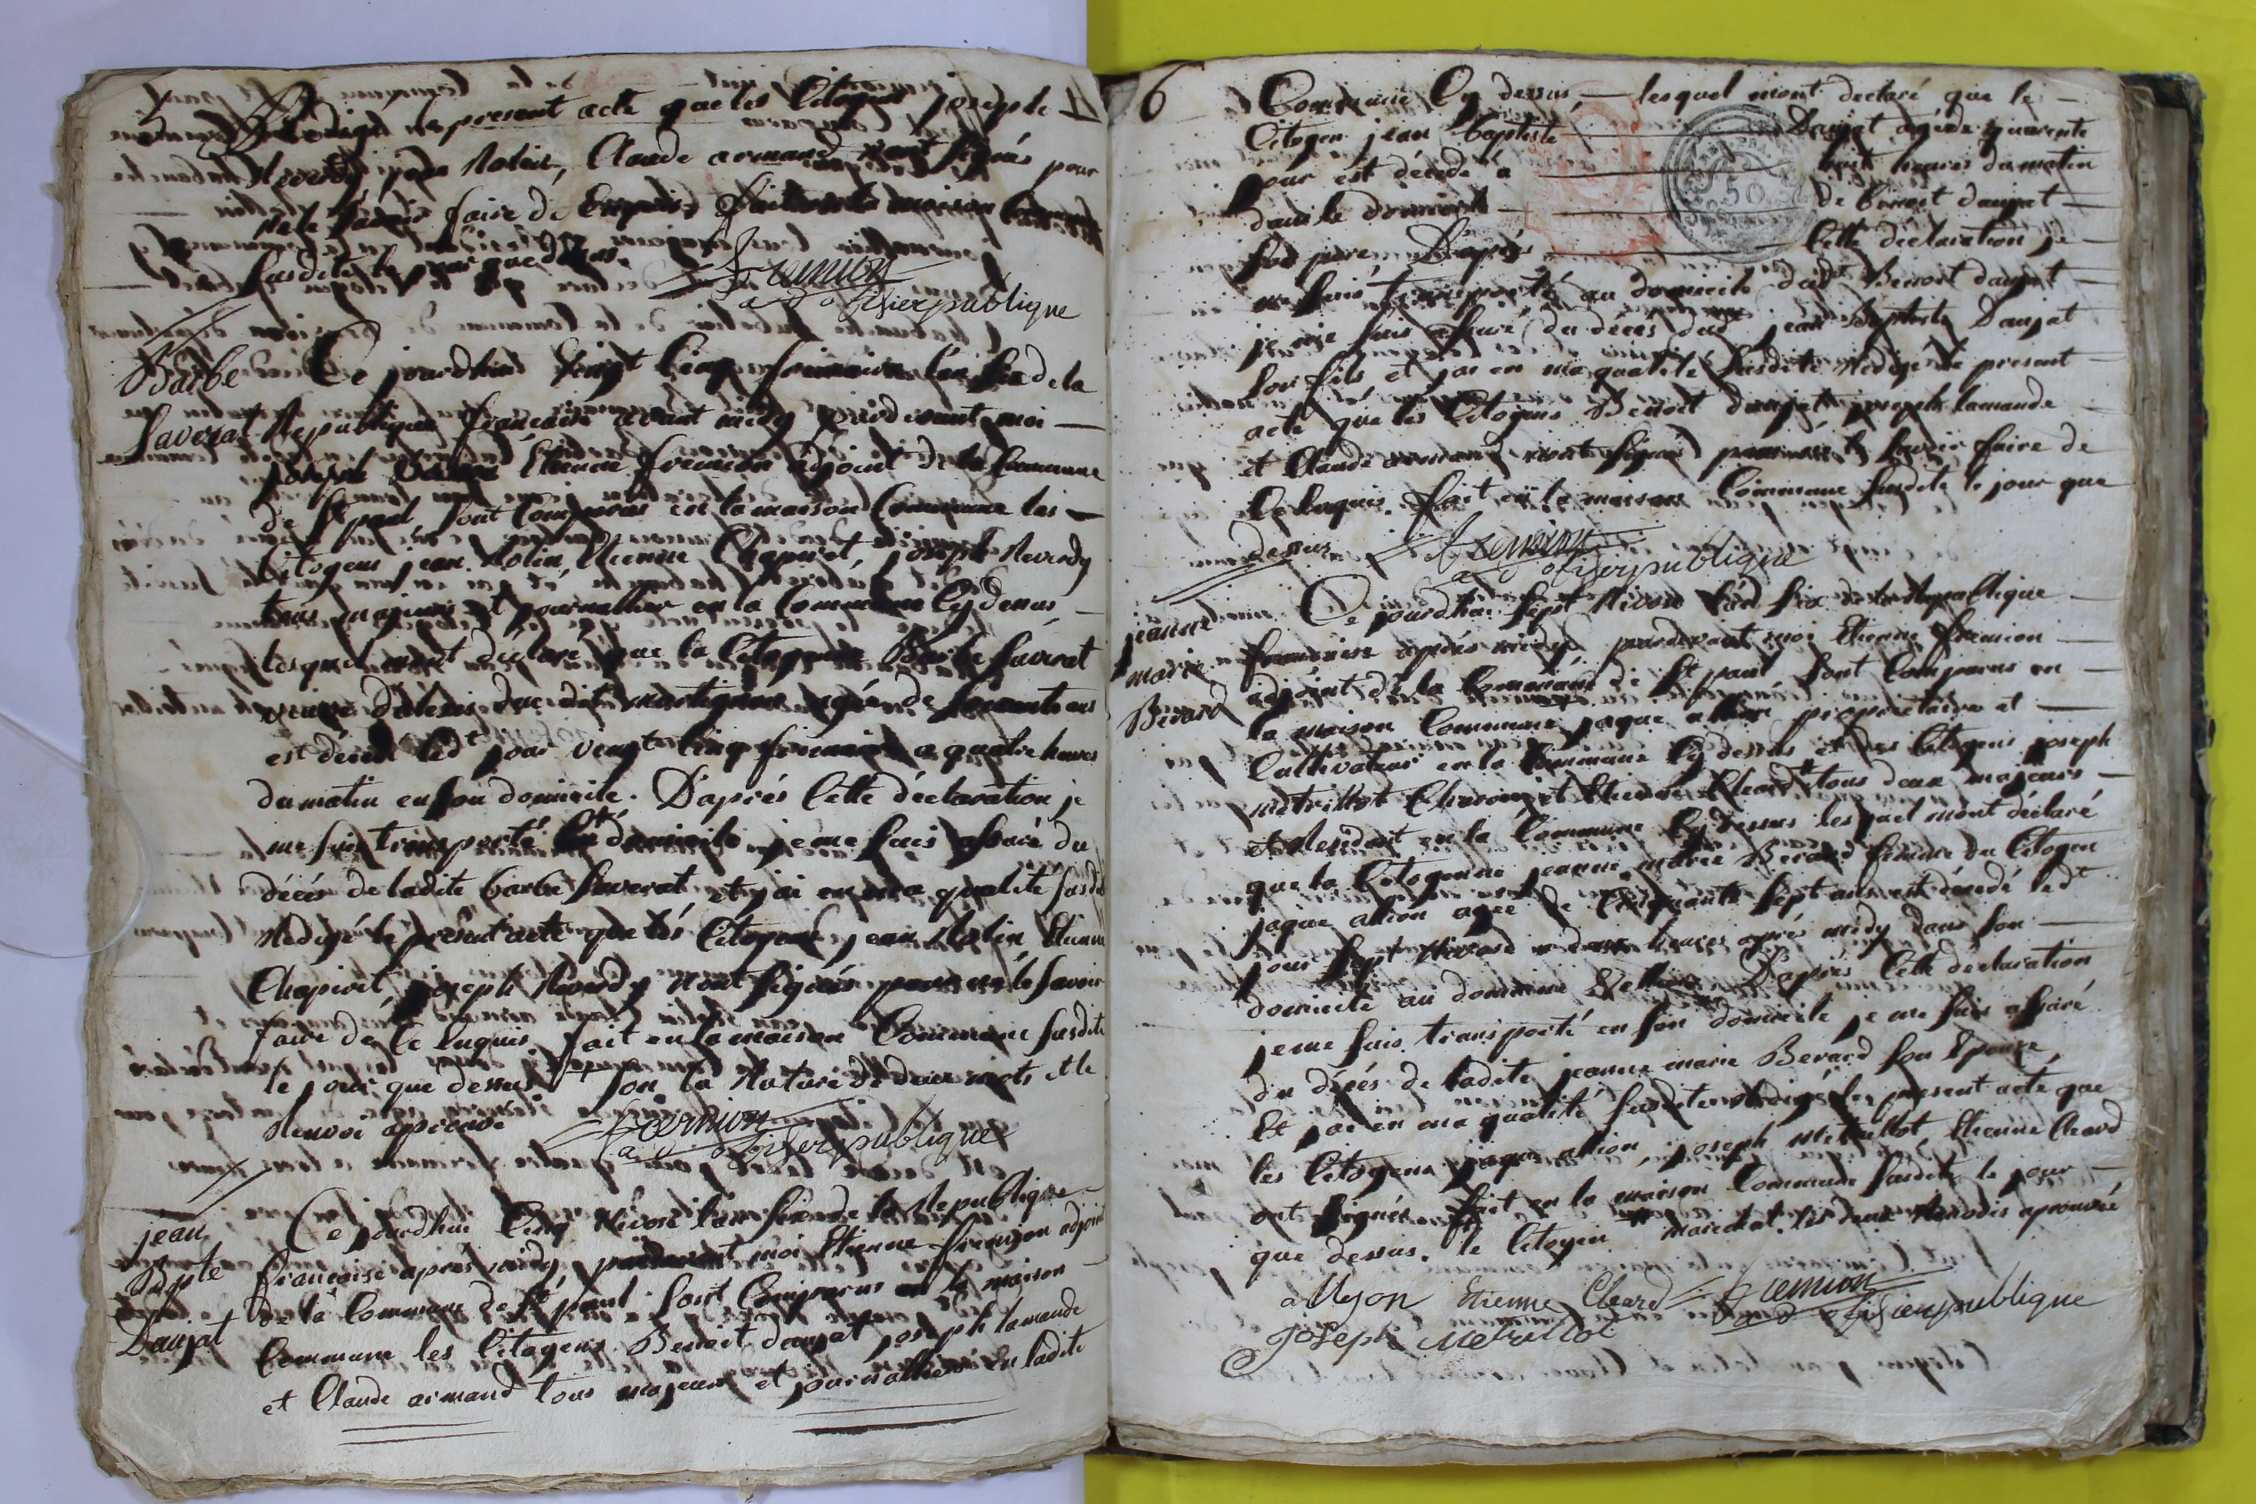 Redigé le present acte que les Citoyens joseph
Reverdy, jean Rolin, Claude armand nont signés pour
ne le savoir faire de Enquis, fait en la maison Commune
susdite le jour que dessus.
fremion
a d o fisierpublique
Barbe
Saverat
Ce jourdhui Vingt Cinq frimaire lan six de la
Republique francaise avant midy pardevant moi
Etienne fremion adjoint de la Commune
de St paul, sont Comparus en la maison Commune les
Citoyens jean Rolin, Etienne Chapiret, joseph Reverdy
tous majeurs et journallier en la Commune Cy dessus
lesquel mont declaré que la Citoyenne Barbe Saverat
veuve agée de ans
est décédé led jour vingt Cinq frimaire a quatre heures
du matin en son domicile. D'après Cette déclaration je
me suis transporté domicile je me suis assuré du
décés de ladite barbe Saverat, et j'ai en ma qualité susdite
Redigé le présent acte que les Citoyens jean Rolin Etienne
Chapiret, joseph Reverdy nont signés pour ne le savoir
faire de Ce Enquis fait en la maison Commune susdite
le jour que dessus la Rature de deux mots et le
Renvoi aprouvé
fremion
a d o fisierpublique
jean
Bapte
Daujat
Ce jourdhui Cinq Nivose lan six de la Republique
francaise après midy, pardevant moi Etienne fremion adjoint
de la Commune de St paul sont Comparus en la maison
Commune les Citoyens Benoit daujat joseph lamande
et Claude armand tous majeurs et journalliers En ladite
6
Commune Cy dessus — lesquel mont declaré que le
Citoyen jean baptiste — Daujat agé de quarente
jour est décédé a — huit heures du matin
dans le domicile — de benoit daujat
son pere. D'après — Cette déclaration je
me suis transporté au domicile dud Benoit daujat
je me suis assuré du décés dud jean Baptiste Daujat
son fils et jai en ma qualité susdite Redigé le present
acte que les Citoyens Benoit daujat joseph lamande
et Claude armand nont signés pour ne le savoir faire de
Ce Enquis. fait en la maison Commune susdite le jour que
dessus
fremion
a d o fisierpublique
jeanne
marie
Bérard
Ce jourdhui sept Nivose lan six de la Republique
francaise après midy pardevant moi Etienne fremion
adjoint de la Commune de St paul sont Comparus en
la maison Commune jaque allion propriétaire et
Cultivateur en la Commune Cy dessus et les Citoyens joseph
metrillot Charon et Etienne Cleard tous deux majeurs
et Residant en la Commune Cy dessus lesquel mont déclaré
que la Citoyenne jeanne marie Berard femme du Citoyen
jaque allion agée de Cinquante sept ans est décédé led
jour sept Nivose a deux heures après midy dans son
domicile au domaine D'apries Cette déclaration
je me suis transporté en son domicile je me suis assuré
du décés de ladite jeanne marie Berard son Epouse,
Et jai en ma qualité susdite Redigé le present acte que
les Citoyens jaque allion, joseph Metrillot, Etienne Cleard
ont signés. fait en la maison Commune susdite le jour
que dessus. le Citoyen marechal. les deux Renvois aprouvée
allyon Etienne Cleard fremion
a d o fisierpublique
joseph metrillot